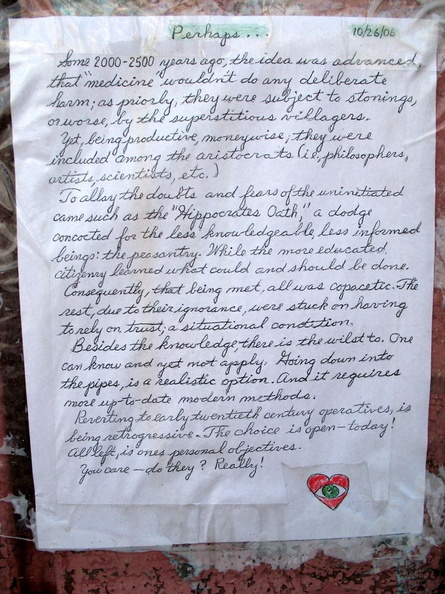 Perhaps... 10/26/06
Some 2000-2500 years ago, the idea was advanced,
that "medicine" wouldn't do any deliberate
harm; as priorly, they were subject to stonings,
or worse, by the superstitious villagers.
Yet, being productive, moneywise; they were
included among the aristocrats (i.e., philosophers,
artists, scientists, etc.)
To allay the doubts and fears of the uninitiated
came such as the "Hippocrates Oath", a dodge
concocted for the less knowledgeable, less informed
beings: the peasantry. While the more educated
citizenry learned what could and should be done.
Consequently, that being met, all was copacetic. The
rest, due to their ignorance, were stuck on having
to rely on trust; a situational condition.
Besides the knowledge, there is the wilst to. One
can know and yet not apply. Going down into
the pipes, is a realistic option. And it requires
more up-to-date modern methods.
Reverting to early twentieth century operatives, is
being retrogressive - The choice is open - today!
All left, is ones personal objectives.
You care - do they? Really!